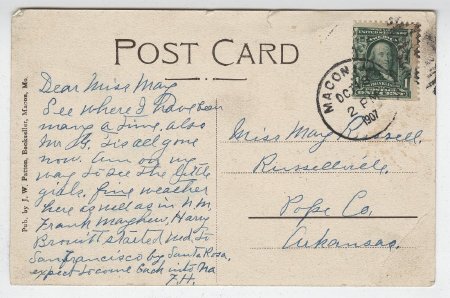 POST CARD
Pub. by J. W. Patton, Bookseller, Macon, Mo.
MACON
OCT
2 PM
1907
Dear Miss May
See where I have been
many a time, also
Mr. is all gone
now. Am on my
way to see the little
girls. fine weather
here as well as in N.M.
Frank Mayhew, Harry
started Wed. to
San francisco by Santa Rosa.
expect to come back into Ma
F.H.
Miss May Russell,
Russellville,
Pope Co,
Arkansas.